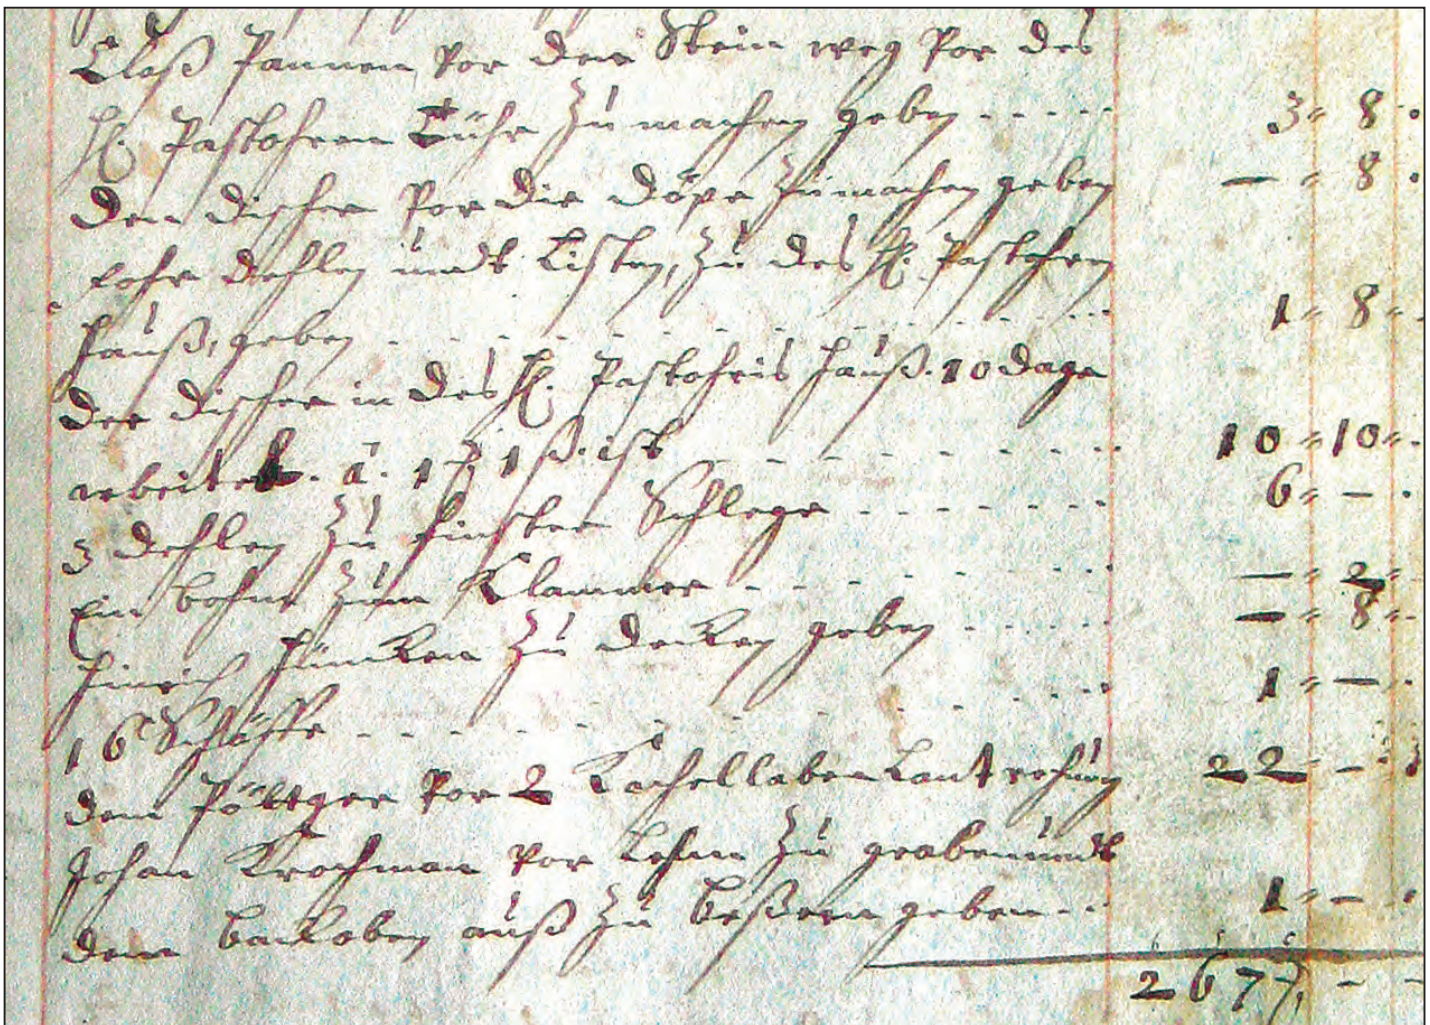 Claß Pannen vor den Stein weg vor des
H. Pastohren Tühr zu machen geben - - - - 3 " 8 "
den discher vor die döpe zu machen geben — " 8 "
fohr dehlen undt Listen, zu des H. Pastohren
Hauß, geben - - - - - 1 " 8 "
der discher in des H. Pastohris Hauß. 10 dage
arbeitet. a. 1 1 ß. ist - - - - 10 " 10 "
3 dehlen zu finster Schlege - - - - 6 " — "
Ein bohnt zum Klammer - - - - — " 2 "
Hinrich Füncken zu decken geben - - - - — " 8 "
16 Schüffe - - - - 1 " — "
dem Pöttger vor 2 Kachellaben Laut rechung 22 " — " 3
Johan Krochman vor Lehm zu graben undt
dem backoben auß zu beßern geben - - 1 " — "
2677 - -